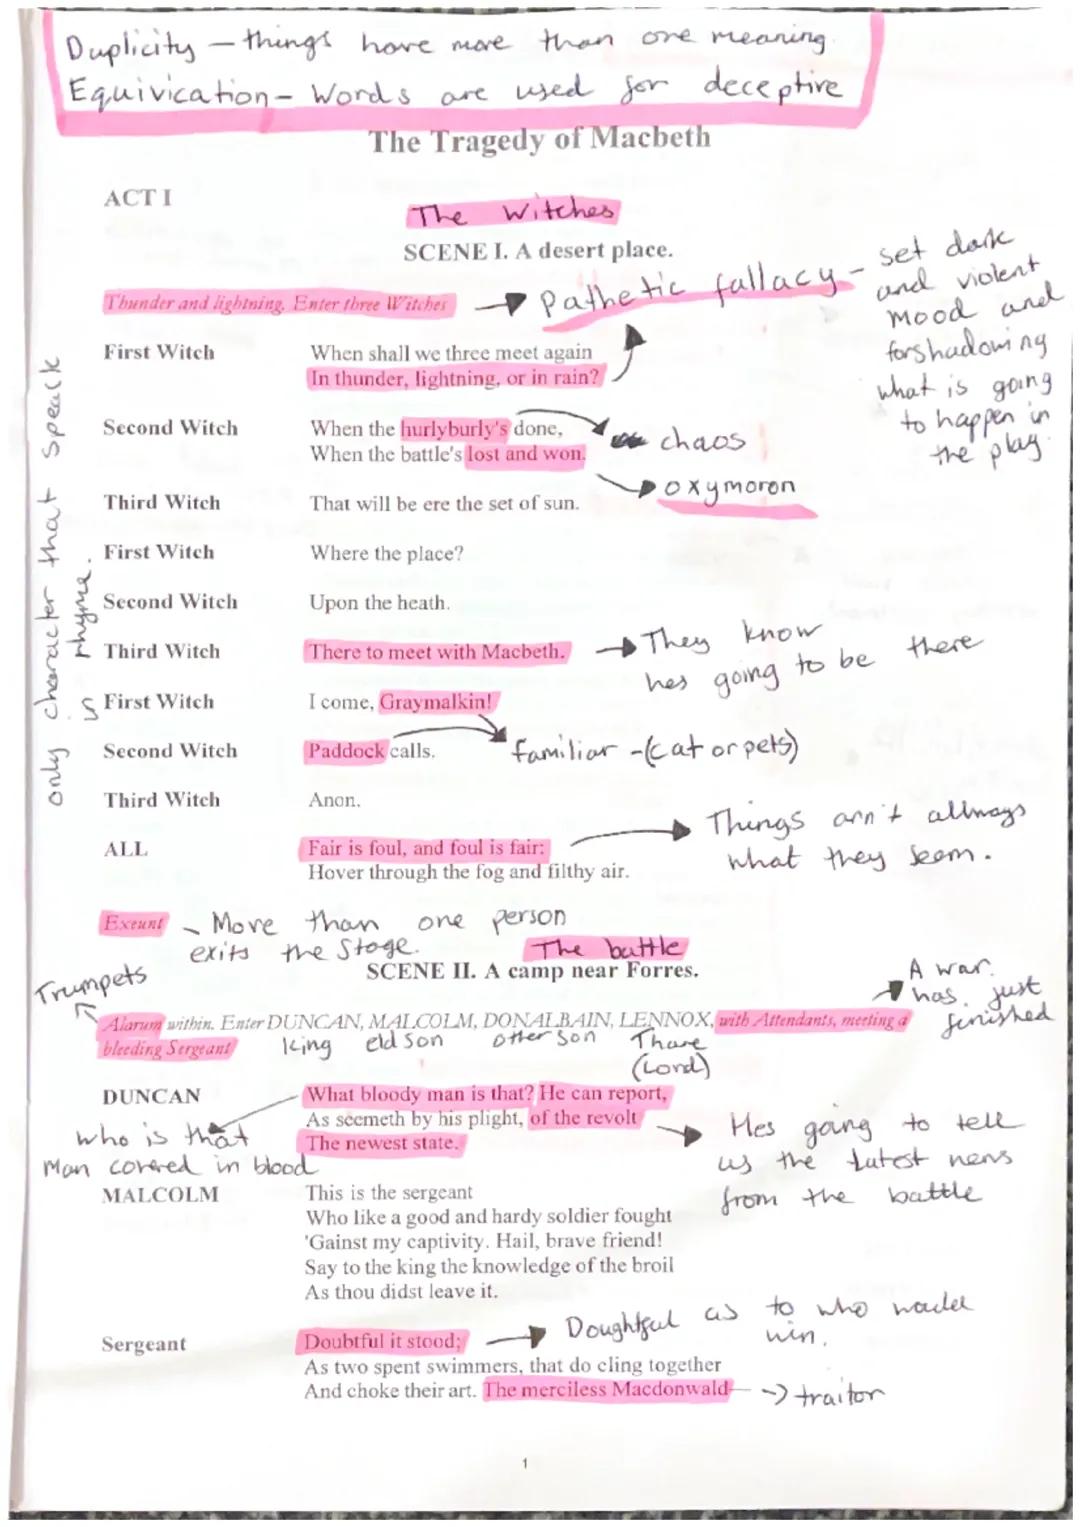 Duplicity – things have more than one meaning.
Equivication – Words are used for deceptive
The Tragedy of Macbeth
ACT I
The Witches
SCENE I. A desert place.
Thunder and lightning. Enter three Witches
→ Pathetic fallacy –
set dark
and violent
mood and
forshadowing
what is going
to happen in
the play.
First Witch
When shall we three meet again
In thunder, lightning, or in rain?
Second Witch
When the hurlyburly's done,
When the battle's lost and won.
chaos
oxymoron
Third Witch
That will be ere the set of sun.
First Witch
Where the place?
Second Witch
Upon the heath.
Third Witch
There to meet with Macbeth.
They know
hes going to be there
First Witch
I come, Graymalkin!
Second Witch
Paddock calls.
familiar -(cat or pets)
Third Witch
Anon.
ALL
Fair is foul, and foul is fair:
Hover through the fog and filthy air.
Things arn't allways
what they seem.
only character that speack
is rhyme.
Exeunt - More than one person
exits the stage.
The battle
SCENE II. A camp near Forres.
Trumpets
A war
has just
finished
Alarum within. Enter DUNCAN, MALCOLM, DONALBAIN, LENNOX, with Attendants, meeting a
bleeding Sergeant
King
eld son
other son
Thane
(Lord)
DUNCAN
What bloody man is that? He can report,
As seemeth by his plight, of the revolt
The newest state.
who is that
Man covered in blood
Hes going to tell
us the latest news
from the battle
MALCOLM
This is the sergeant
Who like a good and hardy soldier fought
'Gainst my captivity. Hail, brave friend!
Say to the king the knowledge of the broil
As thou didst leave it.
Sergeant
Doubtful it stood;
As two spent swimmers, that do cling together
And choke their art. The merciless Macdonwald–
Doughtful as to who would
win.
→ traitor
1